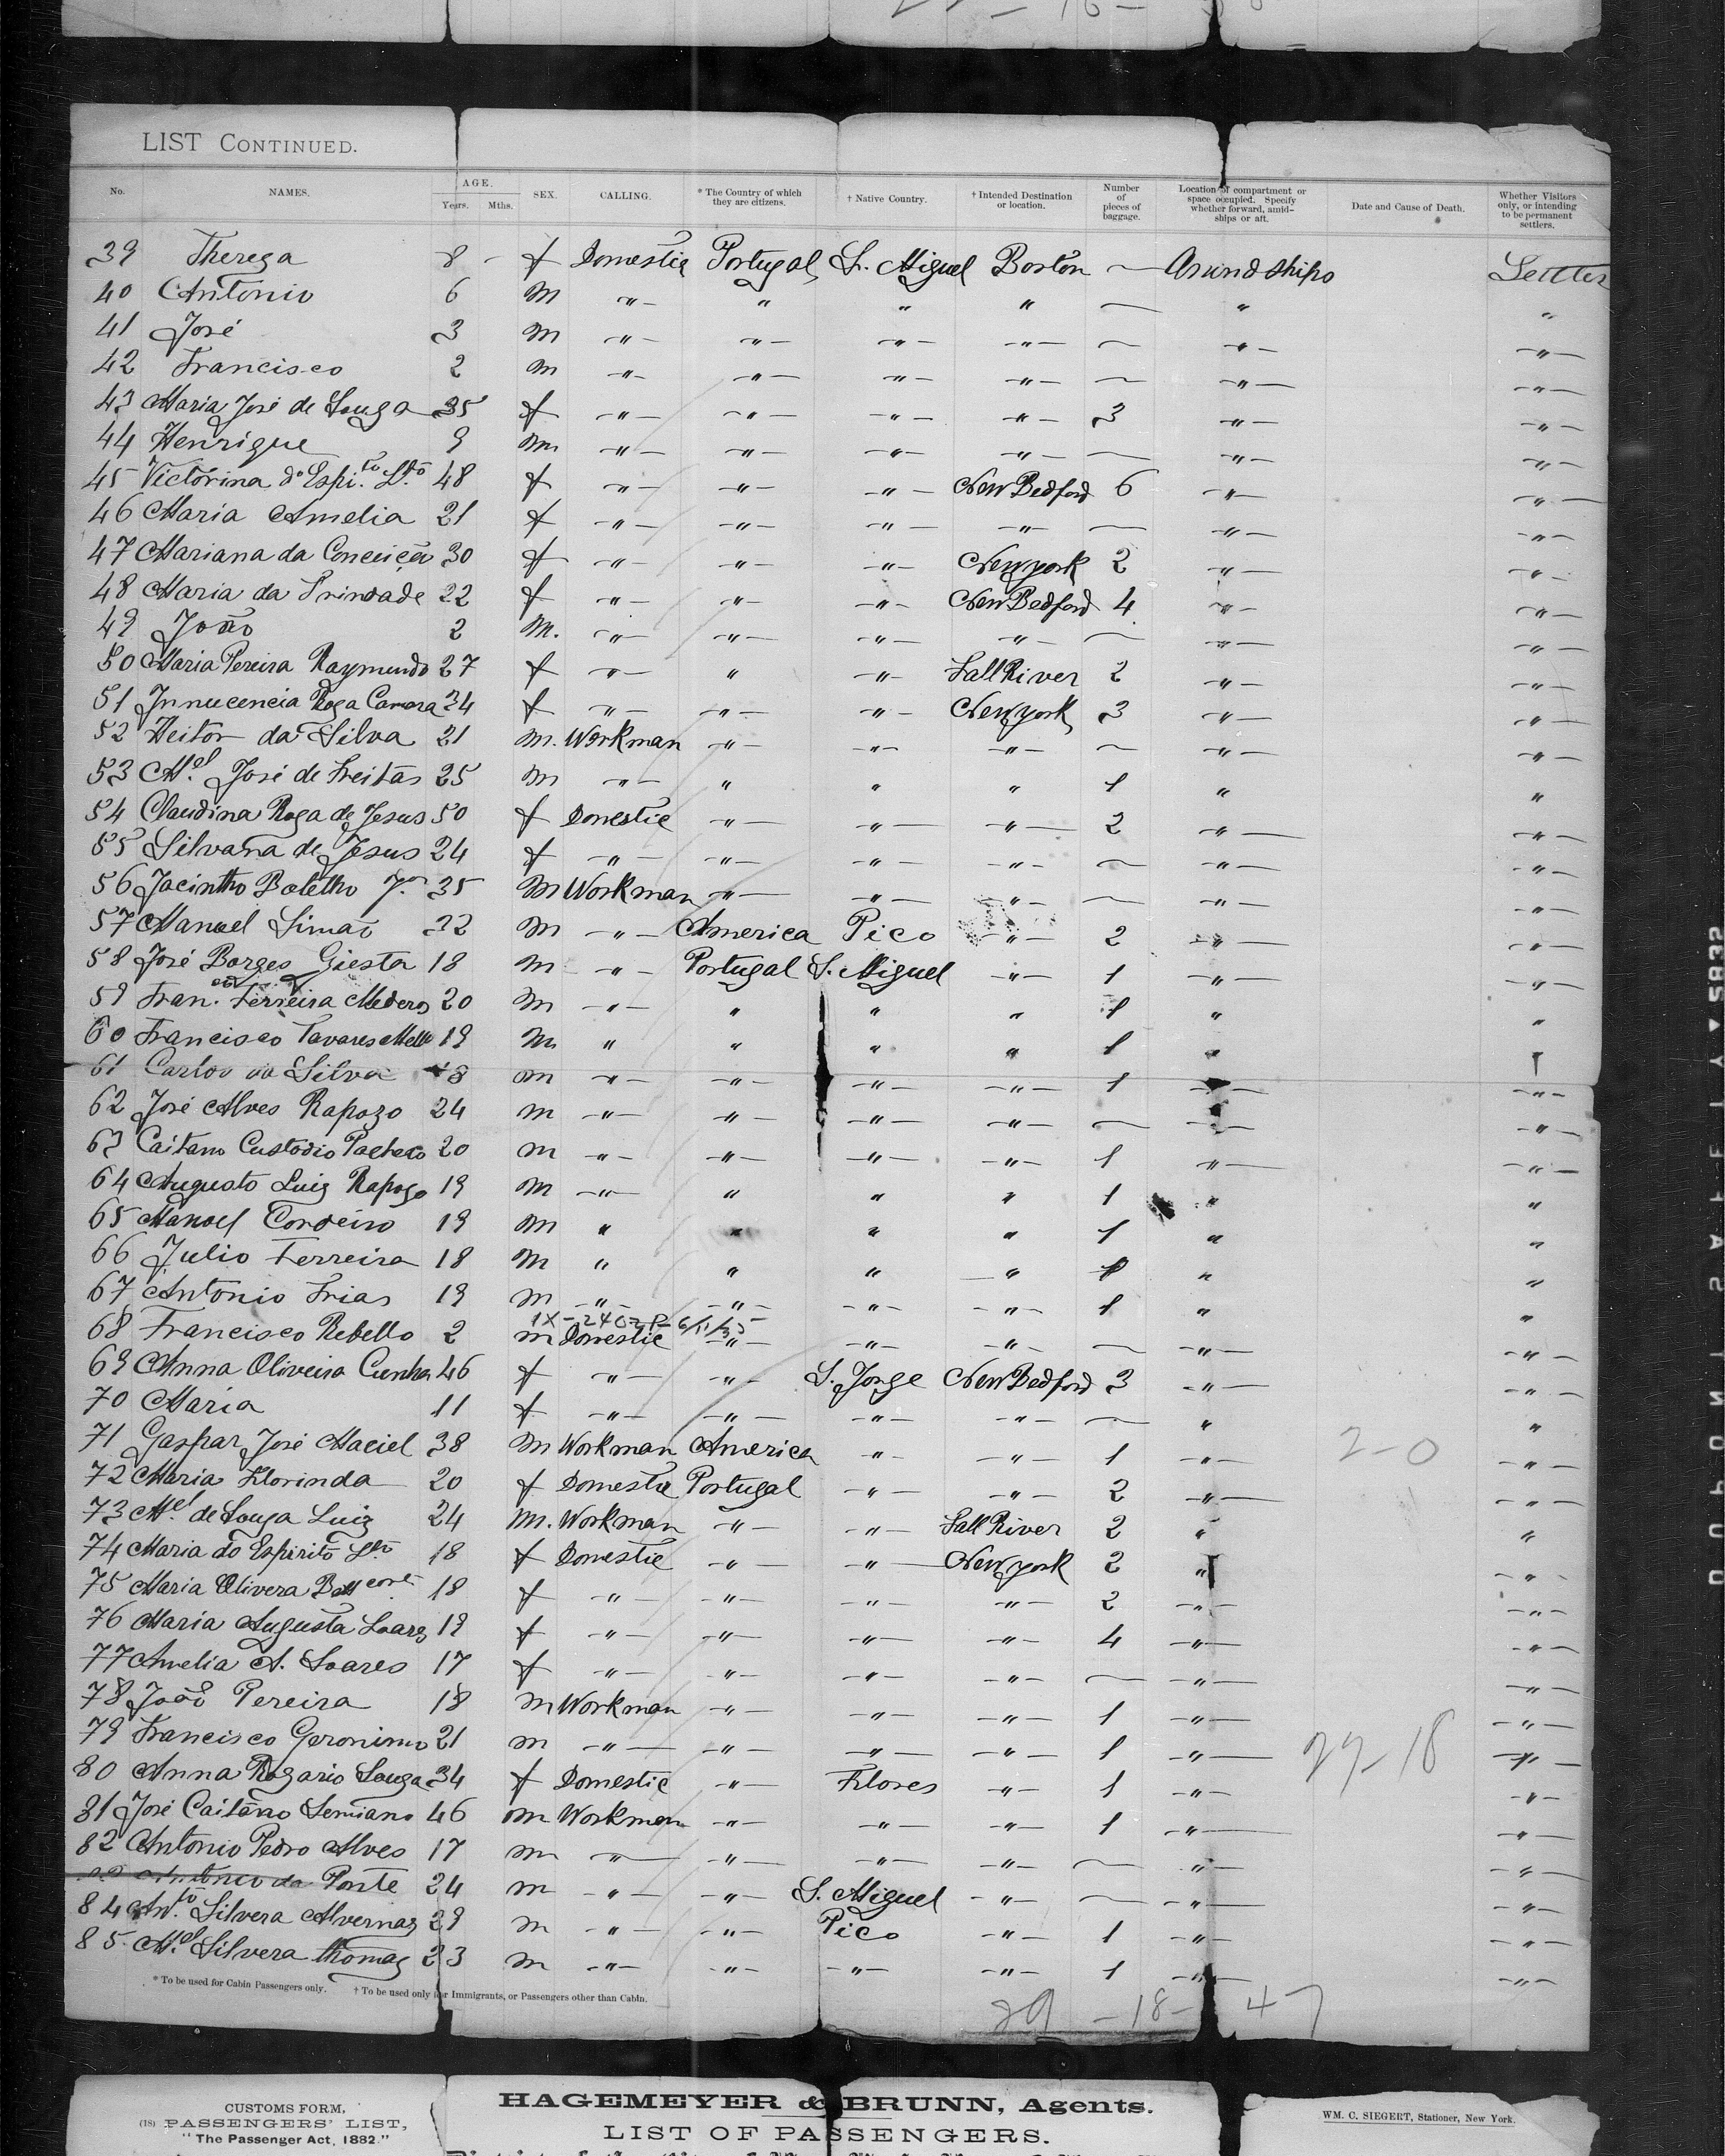 LIST CONTINUED.
No. NAMES. AGE. Years. Mths. SEX. CALLING. * The Country of which they are citizens. † Native Country. † Intended Destination or location. Number of pieces of baggage. Location of compartment or space occupied. Specify whether forward, amidships or aft. Date and Cause of Death. Whether Visitors only, or intending to be permanent settlers.
39 Thereza 8 - f Domestic Portugal S. Miguel Boston — Amindships Settler
40 Antonio 6 m -"- " " " — " "
41 José 3 m -"- -"- -"- -"- — -"- -"-
42 Francisco 2 m -"- -"- -"- -"- — -"- -"-
43 Maria José de Souza 35 f -"- -"- -"- -"- 3 -"- -"-
44 Henrique 9 m -"- -"- -"- -"- — -"- -"-
45 Victorina do Espi.to Sto 48 f -"- -"- -"- New Bedford 6 -"- -"-
46 Maria Amelia 21 f -"- -"- -"- -"- — -"- -"-
47 Mariana da Conceição 30 f -"- -"- -"- New york 2 -"- -"-
48 Maria da Trindade 22 f -"- -"- -"- New Bedford 4 -"- -"-
49 João 2 m. -"- -"- -"- -"- — -"- -"-
50 Maria Pereira Raymundo 27 f -"- " -"- Fall River 2 -"- -"-
51 Innucencia Roza Camara 34 f -"- -"- -"- New york 3 -"- -"-
52 Heitor da Silva 21 m. Workman -"- -"- -"- — -"- -"-
53 M.el José de Freitas 25 m -"- " " " 1 " "
54 Claudina Roza de Jesus 50 f Domestic -"- -"- -"- 2 -"- -"-
55 Silvana de Jesus 24 f -"- -"- -"- -"- — -"- -"-
56 Jacintho Botelho Jor 35 m Workman -"- -"- -"- — -"- -"-
57 Manoel Simão 32 m -"- America Pico -"- 2 -"- -"-
58 José Borges Giesta 18 m -"- Portugal S. Miguel -"- 1 -"- -"-
59 Fran.co Ferreira Mederos 20 m -"- " " " 1 " "
60 Francisco Tavares Mello 19 m " " " " 1 "
61 Carlos da Silva 18 m -"- -"- -"- -"- 1 -"-
62 José Alves Rapozo 24 m -"- -"- -"- -"- — -"- -"-
63 Caitano Custodio Pacheco 20 m -"- -"- -"- -"- 1 -"- -"-
64 Augusto Luiz Rapozo 19 m -"- " " " 1 " "
65 Manoel Cordeiro 19 m " " " " 1 " "
66 Julio Ferreira 18 m " " " -" 1 " "
67 Antonio Frias 19 m -"- -"- -"- -"- 1 " "
1X-240
68 Francisco Rebello 2 m Domestic -"- -"- -"- — -"- -"-
69 Anna Oliveira Cunha 46 f -"- -"- S. Jorge New Bedford 3 -"- -"-
70 Maria 11 f -"- -"- -"- -"- — " "
71 Gaspar José Maciel 38 m Workman America -"- -"- 1 -"- 2-0 -"-
72 Maria Florinda 20 f Domestic Portugal -"- -"- 2 -"- -"-
73 M.el de Souza Luiz 24 m. Workman -"- -"- Fall River 2 " "
74 Maria do Espirito Sto 18 f Domestic -"- -"- New york 2 " -"-
75 Maria Olivera 18 f -"- -"- -"- -"- 2 -"- -"-
76 Maria Augusta Soares 19 f -"- -"- -"- -"- 4 -"- -"-
77 Amelia A. Soares 17 f -"- -"- -"- -"- — -"- -"-
78 João Pereira 18 m Workman -"- -"- -"- 1 -"- -"-
79 Francisco Geronimo 21 m -"- -"- -"- -"- 1 -"- 27-18 -"-
80 Anna Rozario Souza 34 f Domestic -"- Flores -"- 1 -"- -"-
81 José Caitano Semiano 46 m Workman -"- -"- -"- 1 -"- -"-
82 Antonio Pedro Alves 17 m -"- -"- -"- -"- — -"- -"-
Antonio da Ponte 24 m -"- -"- S. Miguel -"- — -"- -"-
84 Ant.to Silvera Alvernaz 29 m -"- -"- Pico -"- 1 -"- -"-
85 M.el Silvera Thomaz 23 m -"- -"- -"- -"- 1 -"- -"-
* To be used for Cabin Passengers only. † To be used only for Immigrants, or Passengers other than Cabin.
29 - 18 - 47
CUSTOMS FORM,
(18) PASSENGERS' LIST,
"The Passenger Act, 1882."
HAGEMEYER & BRUNN, Agents.
LIST OF PASSENGERS.
WM. C. SIEGERT, Stationer, New York.